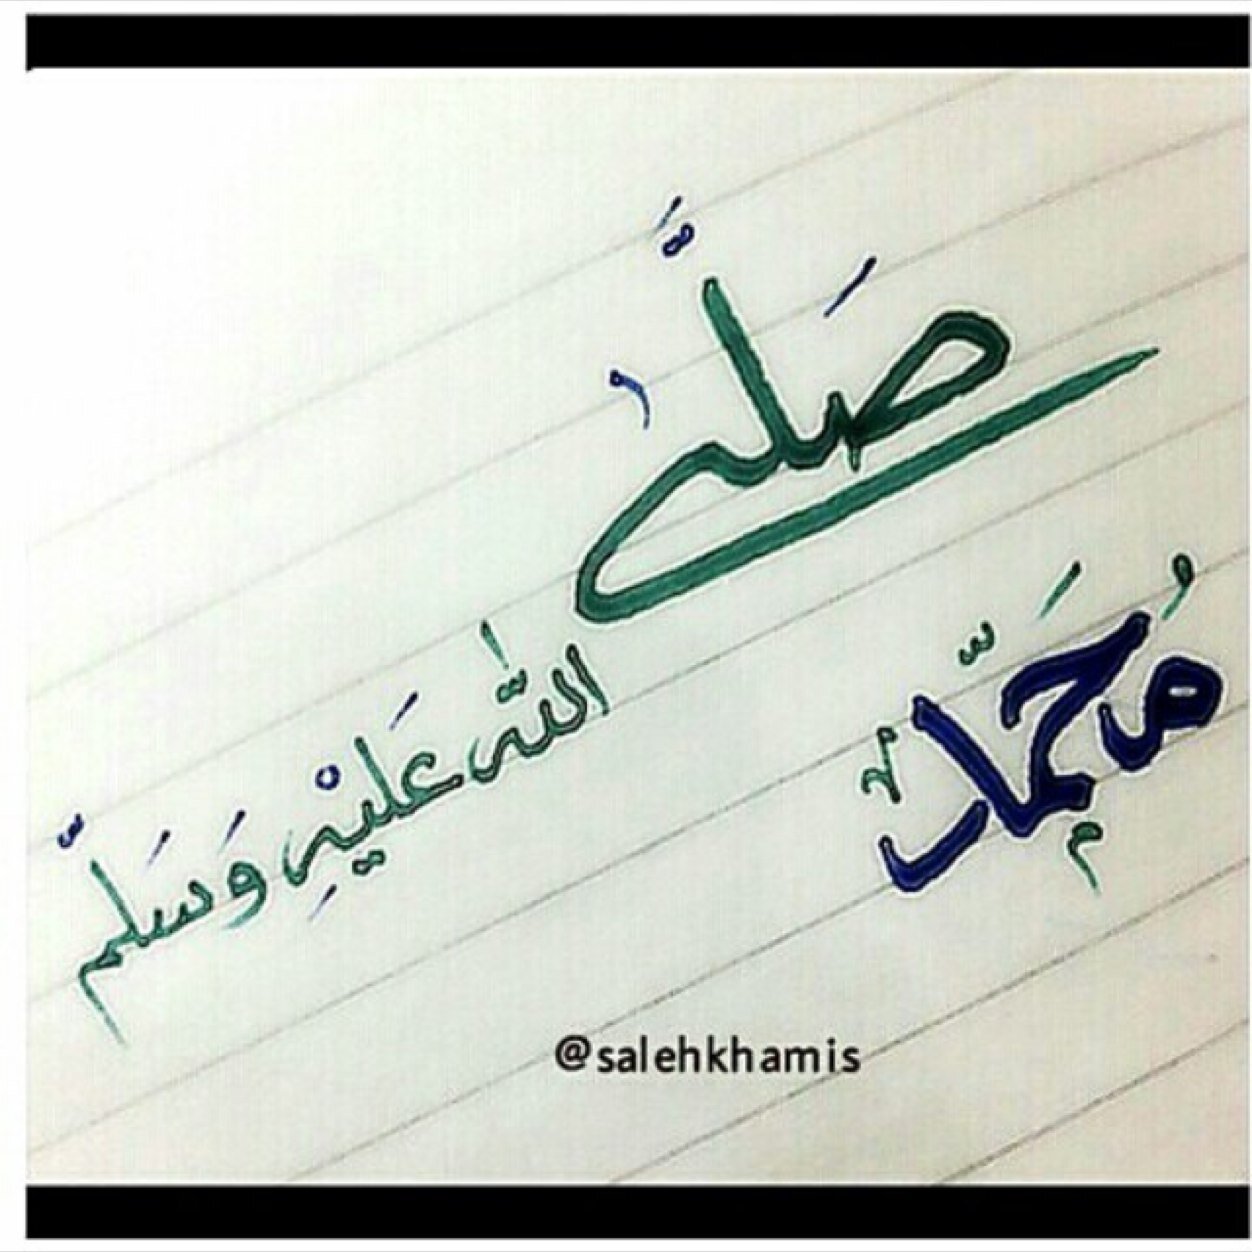 مُحَمَّد
صَلَّى
اللّٰه عَلَيْهِ وَسَلَّم
@salehkhamis